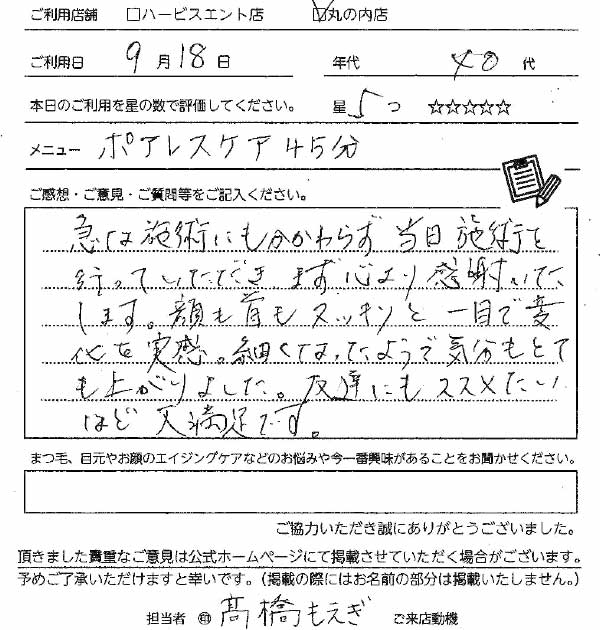 ご利用店舗 □ハービスエント店 ☑丸の内店
ご利用日 9月18日 年代 40代
本日のご利用を星の数で評価してください。 星 5つ ☆☆☆☆☆
メニュー ポアレスケア45分
ご感想・ご意見・ご質問等をご記入ください。
急な施術にも分かわらず当日施術を
行っていただき まず心より感謝いた
します。顔も首もスッキリと一目で変
化を実感。細くなったようで気分もとて
も上がりました。友達にもススメたい
ほど大満足です。
まつ毛、目元やお顔のエイジングケアなどのお悩みや今一番興味があることをお聞かせください。
ご協力いただき誠にありがとうございました。
頂きました貴重なご意見は公式ホームページにて掲載させていただく場合がございます。
予めご了承いただけますと幸いです。（掲載の際にはお名前の部分は掲載いたしません。）
担当者 ㊞ 髙橋もえぎ ご来店動機